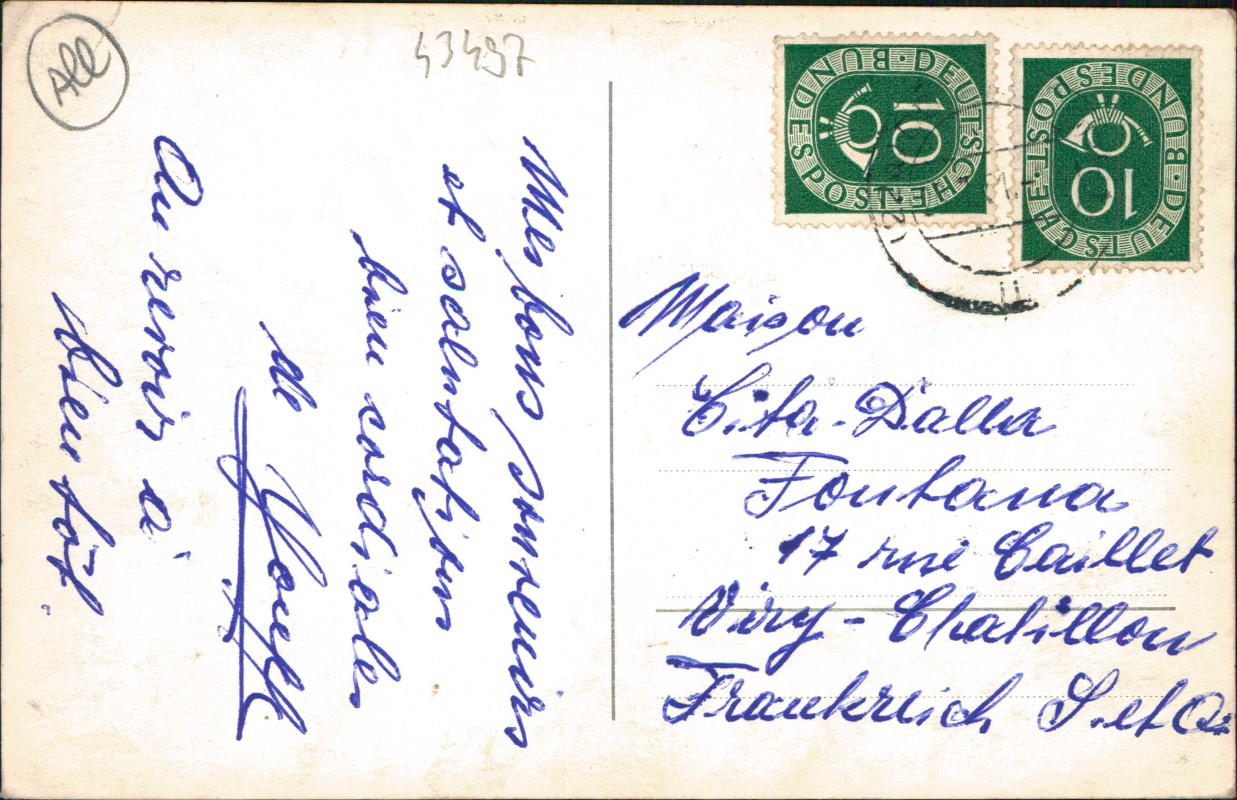 All
43497
Mes bons souvenirs
et salutations
bien cordiales
de
Au revoir à
bientôt.
DEUTSCHE BUNDESPOST
10
DEUTSCHE BUNDESPOST
10
Maison
Cita-Dalla
Fontana
17 rue Caillet
Viry-Chatillon
Frankreich S.et O.